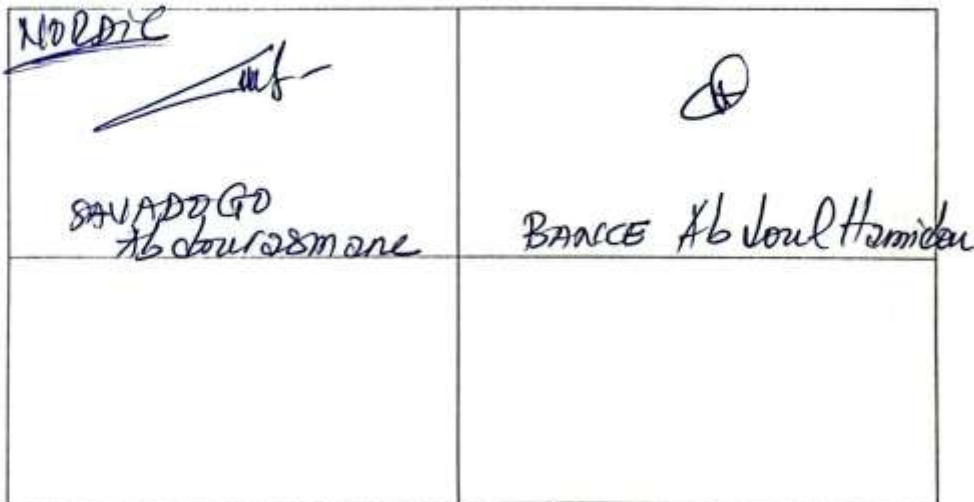 NORDIC
SAVADOGO
Abdourasmane
BANCE Abdoul Hamidou